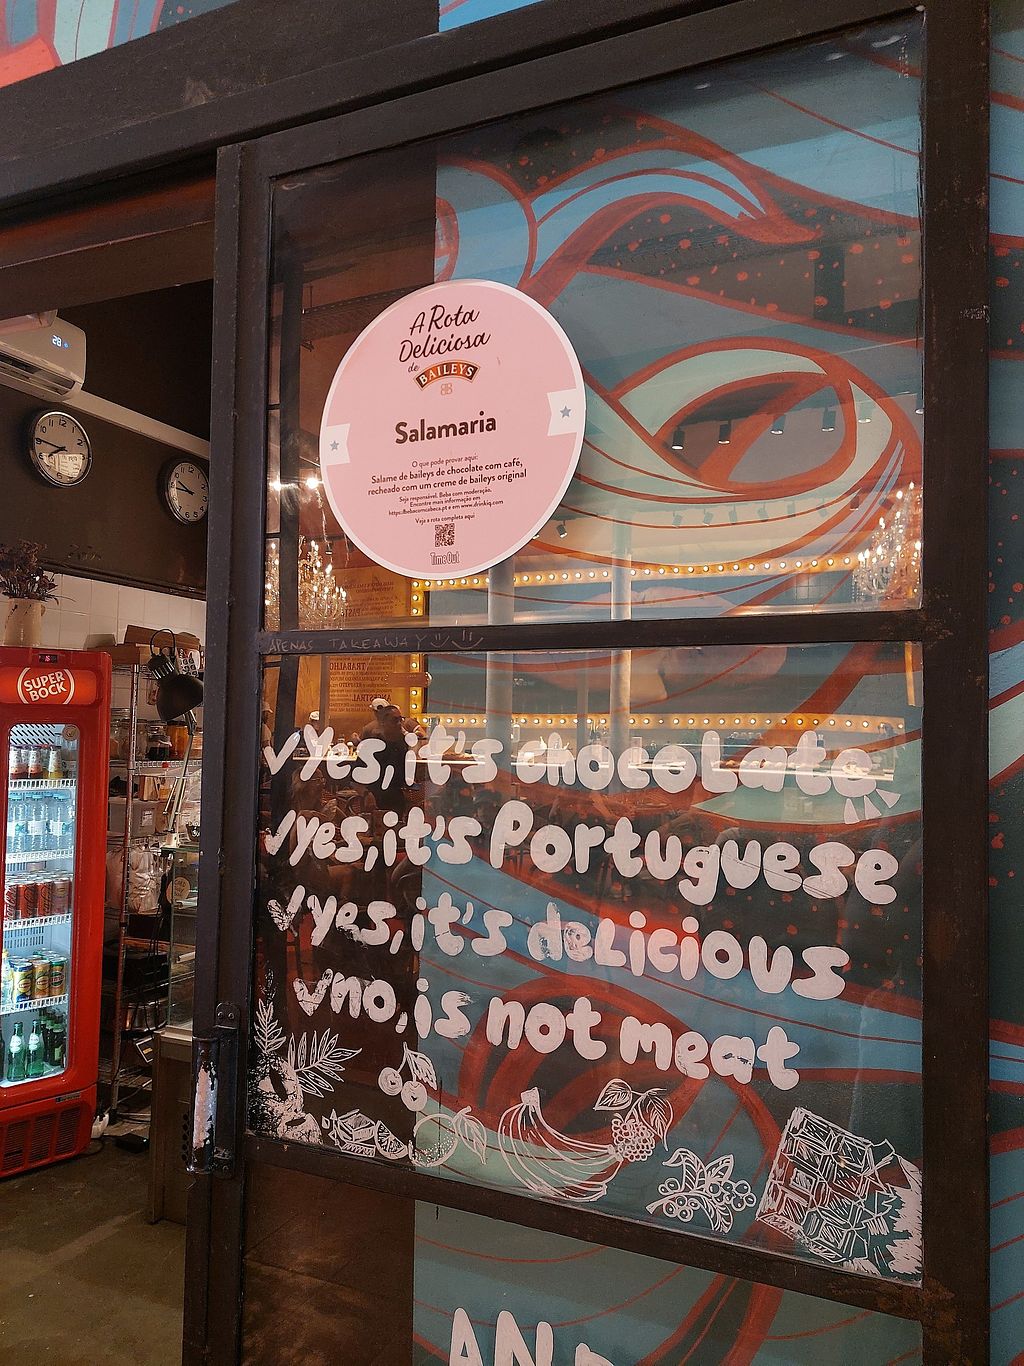 A Rota
Deliciosa
de BAILEYS
Salamaria
O que pode provar aqui:
Salame de baileys de chocolate com café,
recheado com um creme de baileys original
Seja responsável. Beba com moderação.
Encontre mais informação em
https://bebacomcabeca.pt e em www.drinkiq.com
Veja a rota completa aqui
TimeOut
28
SUPER
BOCK
APENAS TAKEAWAY
TRABALHO
ANCESTRAL
✓Yes, it's chocolate
✓yes, it's Portuguese
✓yes, it's delicious
✓no, is not meat